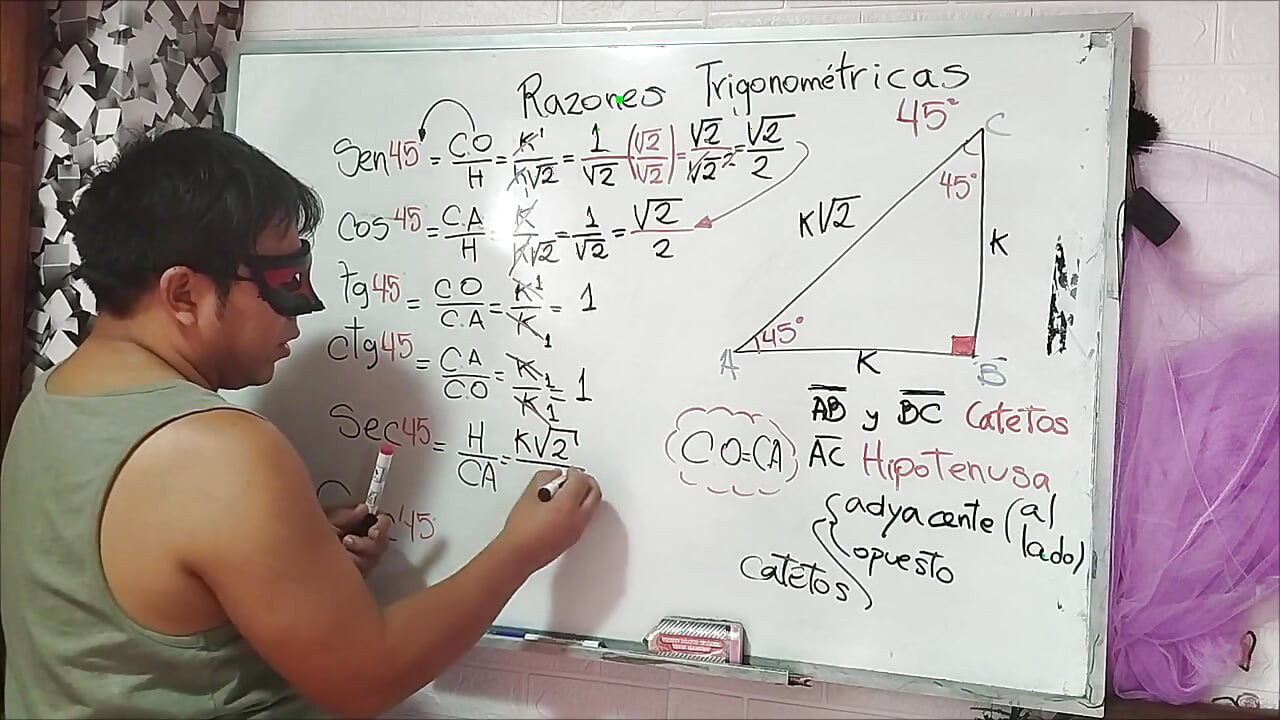 Razones Trigonométricas
Sen 45° = CO/H = K/K√2 = 1/√2 (√2/√2) = √2/√2² = √2/2
Cos 45 = C.A/H = K/K√2 = 1/√2 = √2/2
Tg 45 = CO/C.A = K/K = 1
Ctg 45 = CA/CO = K/K = 1
Sec 45 = H/CA = K√2
45
45°
C
45°
K√2
K
45°
A
K
B
AB y BC Catetos
CO=CA
AC Hipotenusa
Catetos { adyacente (al lado)
opuesto